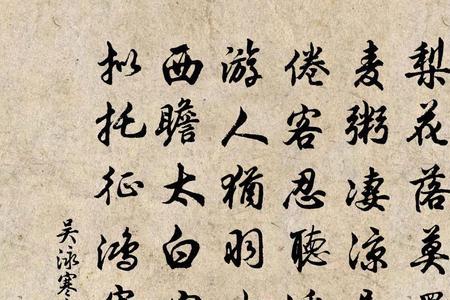 梨花落莫
麦粥凄凉
倦客忍聽
游人猶羽
西瞻太白
拟托征鴻
吴泳寒